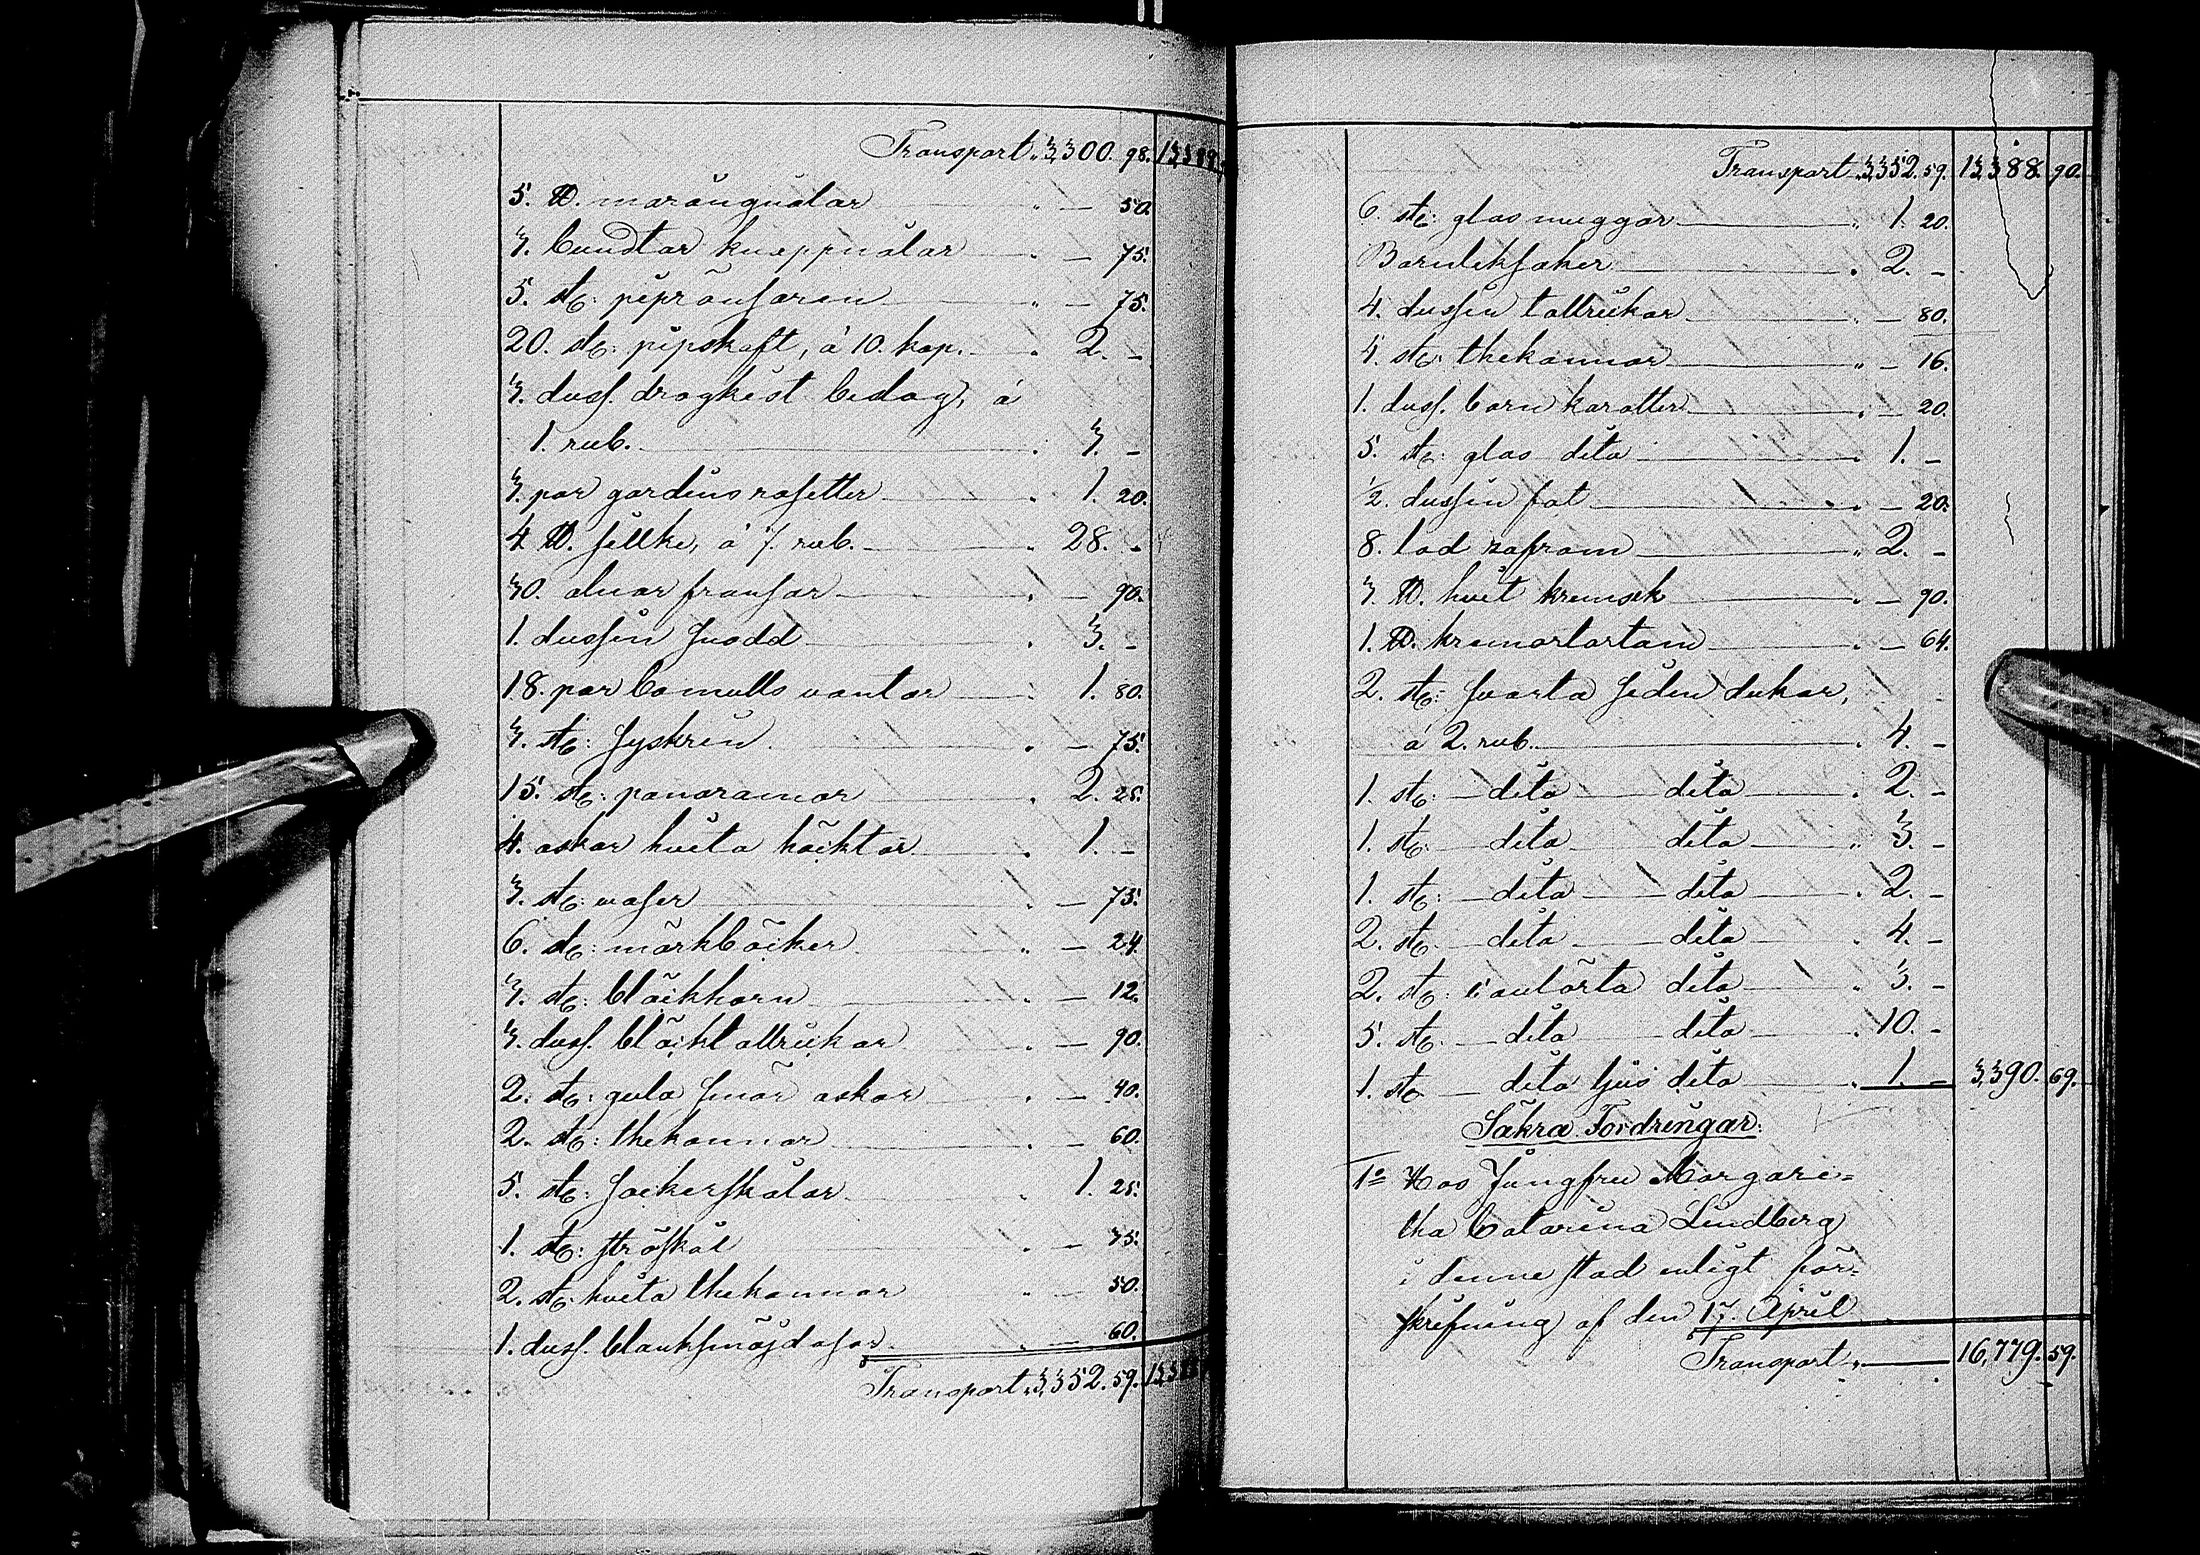 Transport „ 3,300. 98. 13,388
5. ℔. marängnålar „ — 50.
3. bundtar knappnålar „ — 75.
5. st: pipränsaren „ — 75.
20. st: pipskaft, á 10. kop. „ 2. –
3. duss. dragkist beslag, á
1. rub. „ 3. –
3. par gardins rosetter „ 1. 20.
4 ℔. sillke, á 7. rub. „ 28. –
30. alnar fransar „ — 90.
1. dussin snodd „ 3. –
18. par bomulls vantar „ 1. 80.
3. st: syskrin „ — 75.
15. st: panoramor „ 2. 25.
4. askar hvita häcktor „ 1. –
3. st: vaser „ — 75.
6. st: märkböcker „ — 24.
3. st: bläckhorn „ — 12.
3. duss. bläcktallrickar „ — 90.
2. st: gula smör askar „ — 40.
2. st: thekannor „ — 60.
5. st: sockerskålar „ 1. 25.
1. st: ströskål „ — 35.
2. st: hvita thekannor „ — 50.
1. duss. blanksmöjdosor „ — 60.
Transport „ 3,352. 59. 13,388
Transport „ 3,352. 59. 13,388. 90.
6. st: glas muggar „ 1. 20.
Barnleksaker „ 2. –
4. dussin tallrikar „ — 80.
4. st: thekannor „ — 16.
1. duss. barn karotter „ — 20.
5. st: glas dito „ 1. –
1/2. dussin fat „ — 20.
8. lod zafram „ 2. –
3. ℔. hvit kremsek „ — 90.
1. ℔. kremortartam „ — 64.
2. st: svarta siden dukar,
á 2. rub. „ 4. –
1. st: — dito — dito „ 2. –
1. st: — dito — dito „ 3. –
1. st: — dito — dito „ 2. –
2. st — dito — dito „ 4. –
2. st: coulörta dito „ 3. –
5. st — dito — dito „ 10. –
1. st — dito ljus dito „ 1. – 3,390. 69.
Säkra Fordringar.
1º Hos Jungfru Margare=
tha Catarina Lindberg
i denne stad enligt för=
skrifning af den 17. April
Transport „ — 16,779. 59.